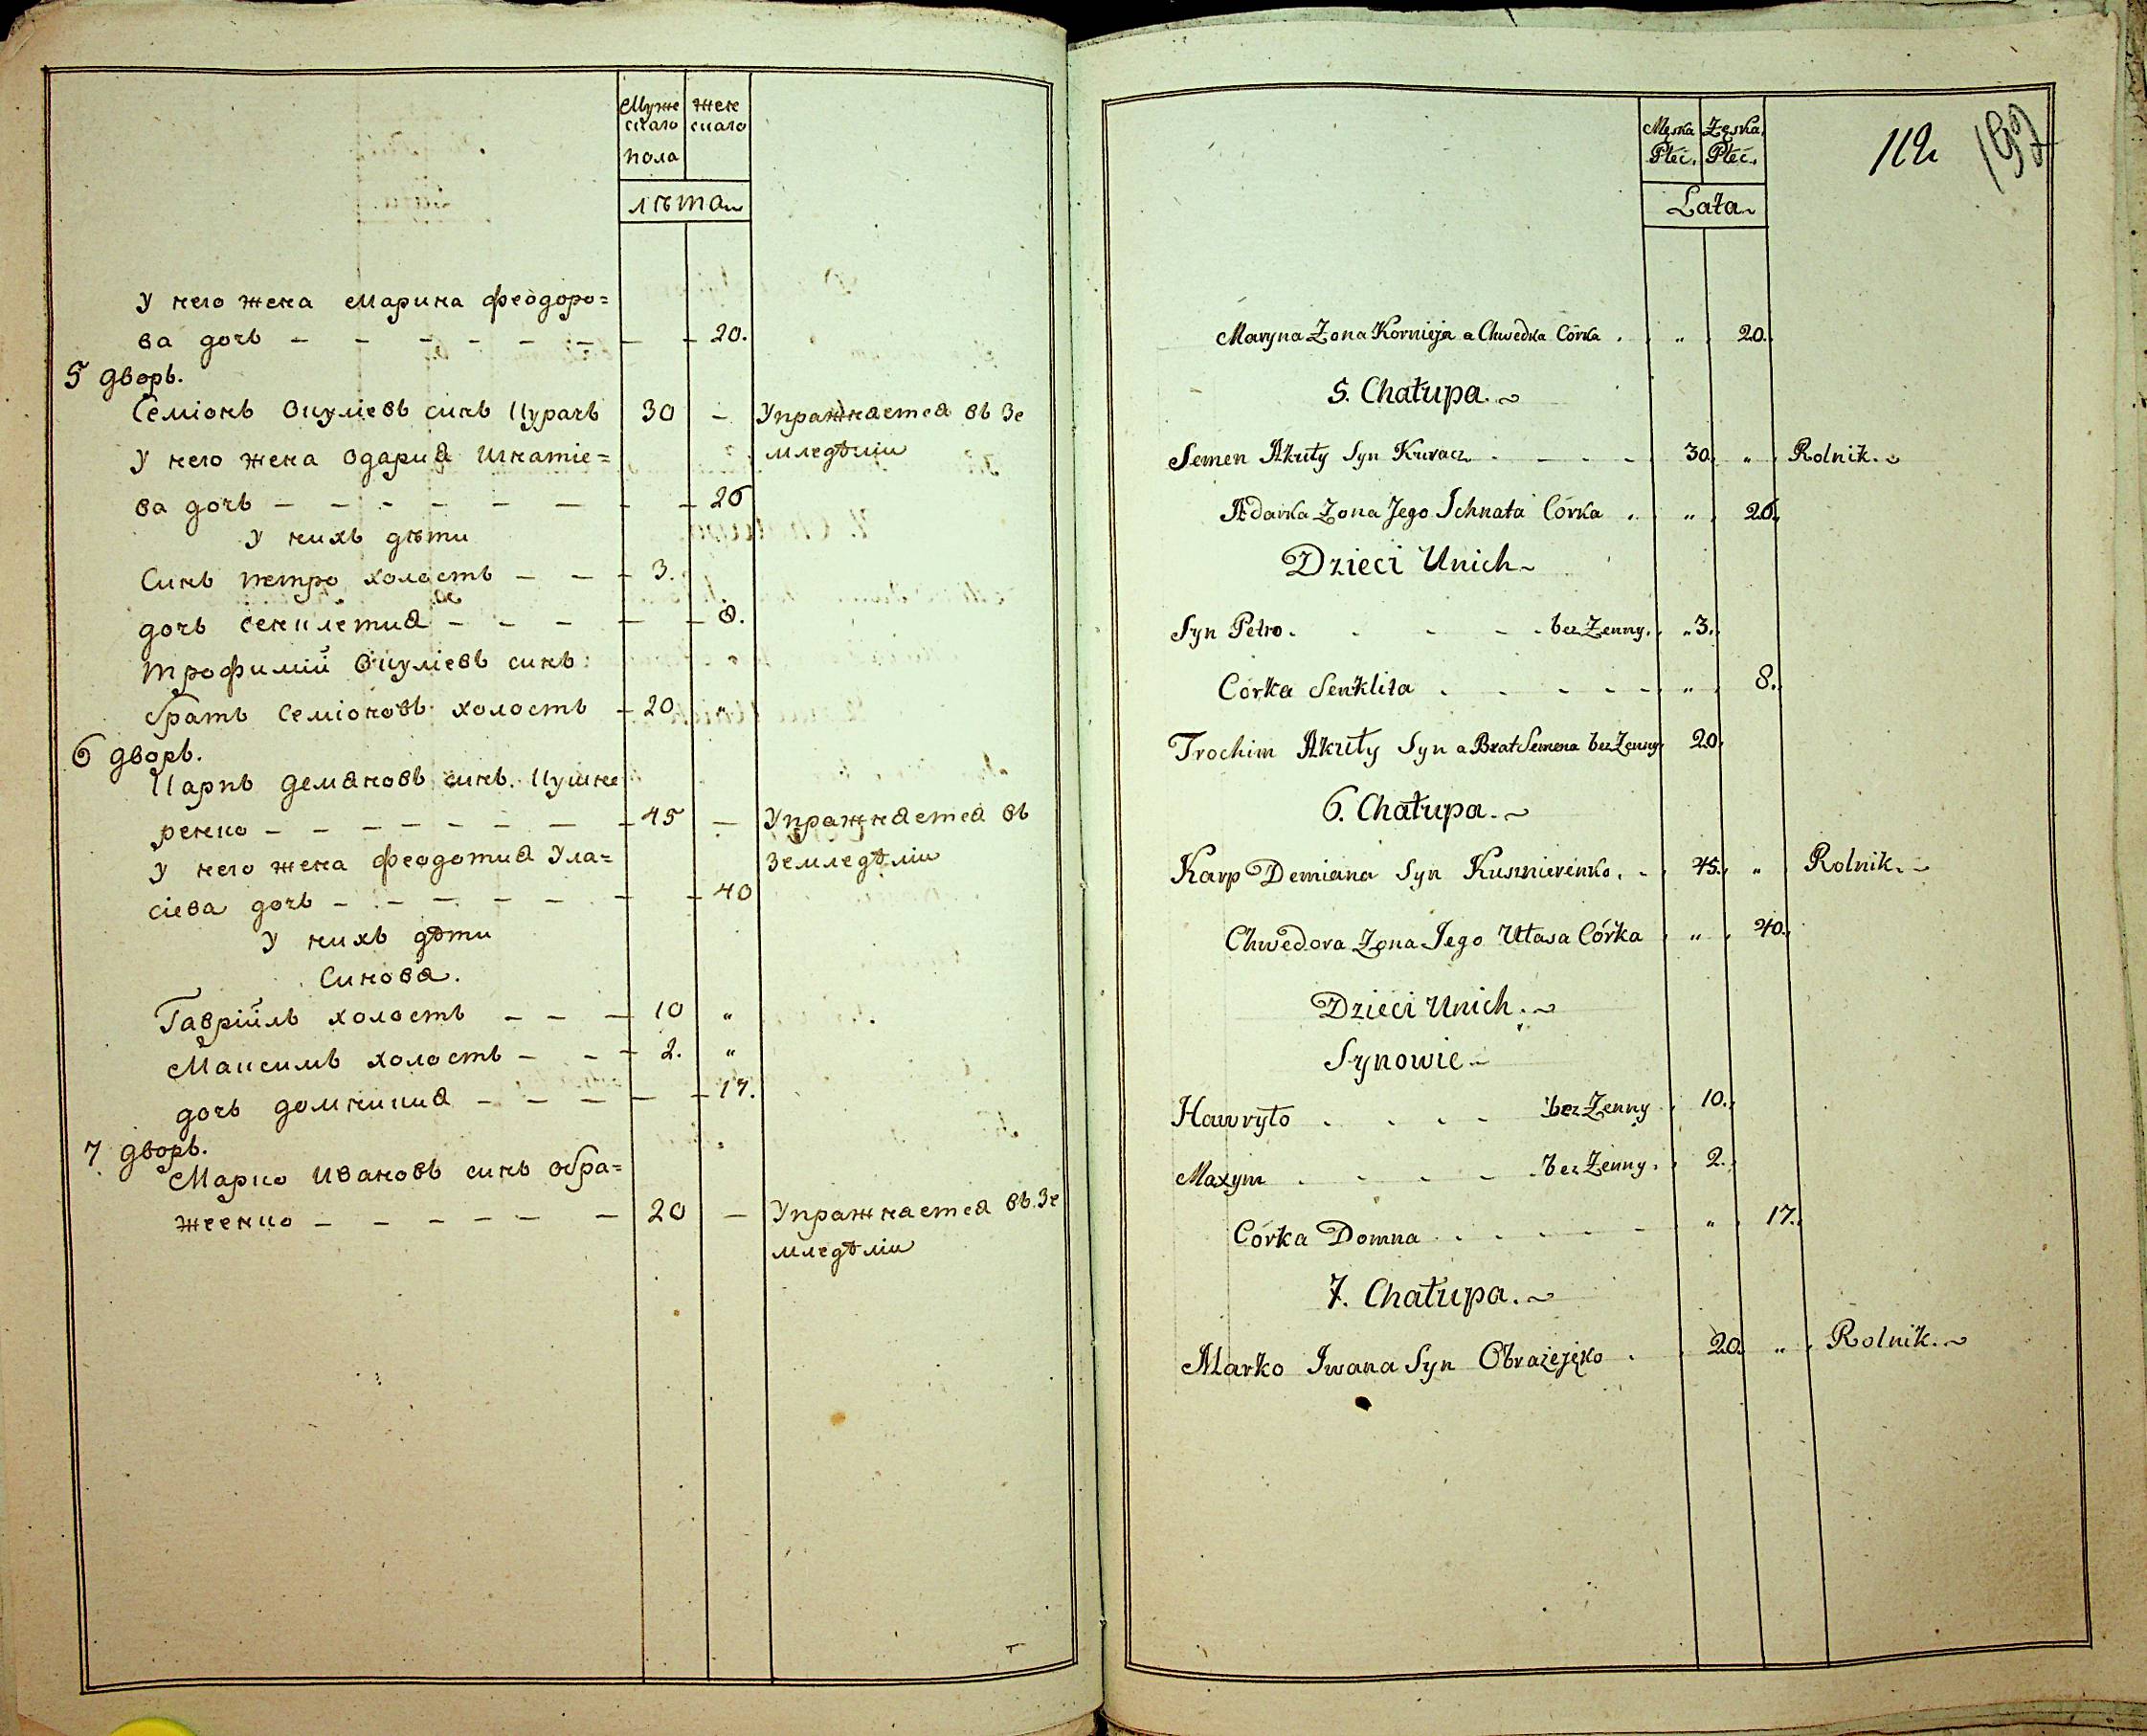 Муже жен
скаго скаго
пола
лѣта
У него жена Марина Феодоро=
ва дочь — — — — — — — — 20.
5 дворъ.
Семіонъ Окуліевъ синъ Курачъ 30 — Упражняется въ Зе
мледѣліи
У него жена Одария Игнатіе=
ва дочь — — — — — — — — 26
У нихъ дѣти
Синъ петро холостъ — — — 3.
дочь Сенклетия — — — — — 8.
Трофимій Окуліевъ синъ
братъ Семіоновъ холостъ — 20 „
6 дворъ.
Карпъ Демяновъ синъ Кушне
ренко — — — — — — — — 45 — Упражняется въ
Земледѣліи
У него жена Феодотия Ула=
сіева дочь — — — — — — — — 40
У нихъ дѣти
Синовя.
Гавріилъ холостъ — — — 10 „
Максимъ холостъ — — — 2. „
дочь домникия — — — — — 17.
7 дворъ.
Марко Ивановъ синъ обра=
жеенко — — — — — — 20 — Упражняется въ Зе
мледѣліи
112 192
Męska Żęska
Płeć. Płeć.
Lata
Maryna Żona Kornieja a Chwedka Córka . „ 20.
5. Chałupa.
Semen Akuły Syn Kuracz . — — — 30. „ Rolnik.
Adarka Żona Jego Ichnata Córka . „ 26.
Dzieci Unich
Syn Petro . . . - - . bez Żenny. „ 3.
Córka Senklita . . . - - - „ 8.
Trochim Akuły Syn a Brat Semena bez Żenny 20.
6. Chałupa.
Karp Demiana Syn Kusznierenko. - 45. „ Rolnik.
Chwedora Żona Jego Ułasa Córka „ 40.
Dzieci Unich.
Synowie
Hawryło . . . - bez Żenny 10.
Maxym . . . - . bez Żenny. 2.
Córka Domna . . . . - „ 17.
7. Chałupa.
Marko Iwana Syn Obrażejęko . 20. „ Rolnik.